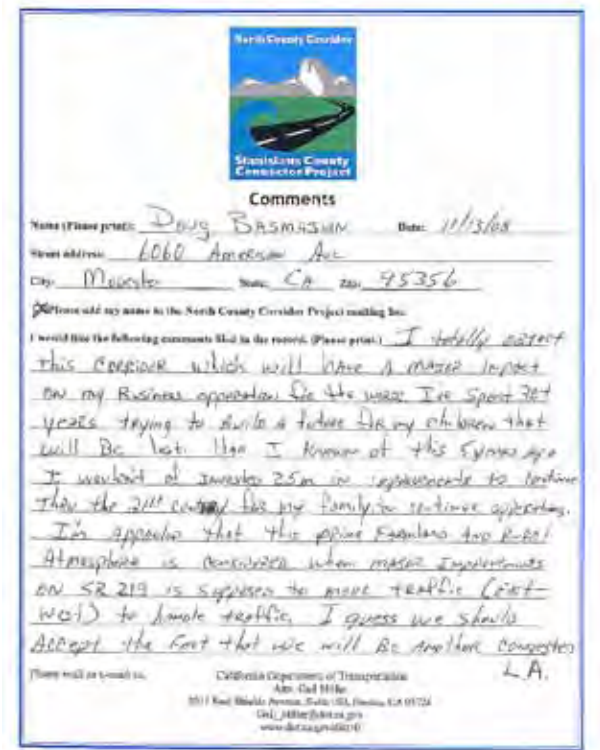 North County Corridor
Stanislaus County
Connector Project
Comments
Name (Please print): Doug Date: 11/13/08
Street address: 6060 American Ave
City: Modesto State: CA Zip: 95356
Please add my name to the North County Corridor Project mailing list.
I would like the following comments filed in the record. (Please print.) I totally object
this Corridor which will have A major impact
on my Business opperation for the worse I've spent 30+
years trying to build a future for my children that
will Be lost. Had I known of this 5 years ago
I wouldn't of invested 2.5m in improvements to continue
Thru the 21st century for my family to continue operating.
I'm appauled that this prime Farmland And Rural
Atmosphere is considered when major Improvements
on SR 219 is supposed to move traffic (east-
west) to handle traffic. I guess we should
Accept the Fact that we will Be Another Congested
L.A.
Please mail or e-mail to:
California Department of Transportation
Attn: Gail Miller
Gail_Miller@dot.ca.gov